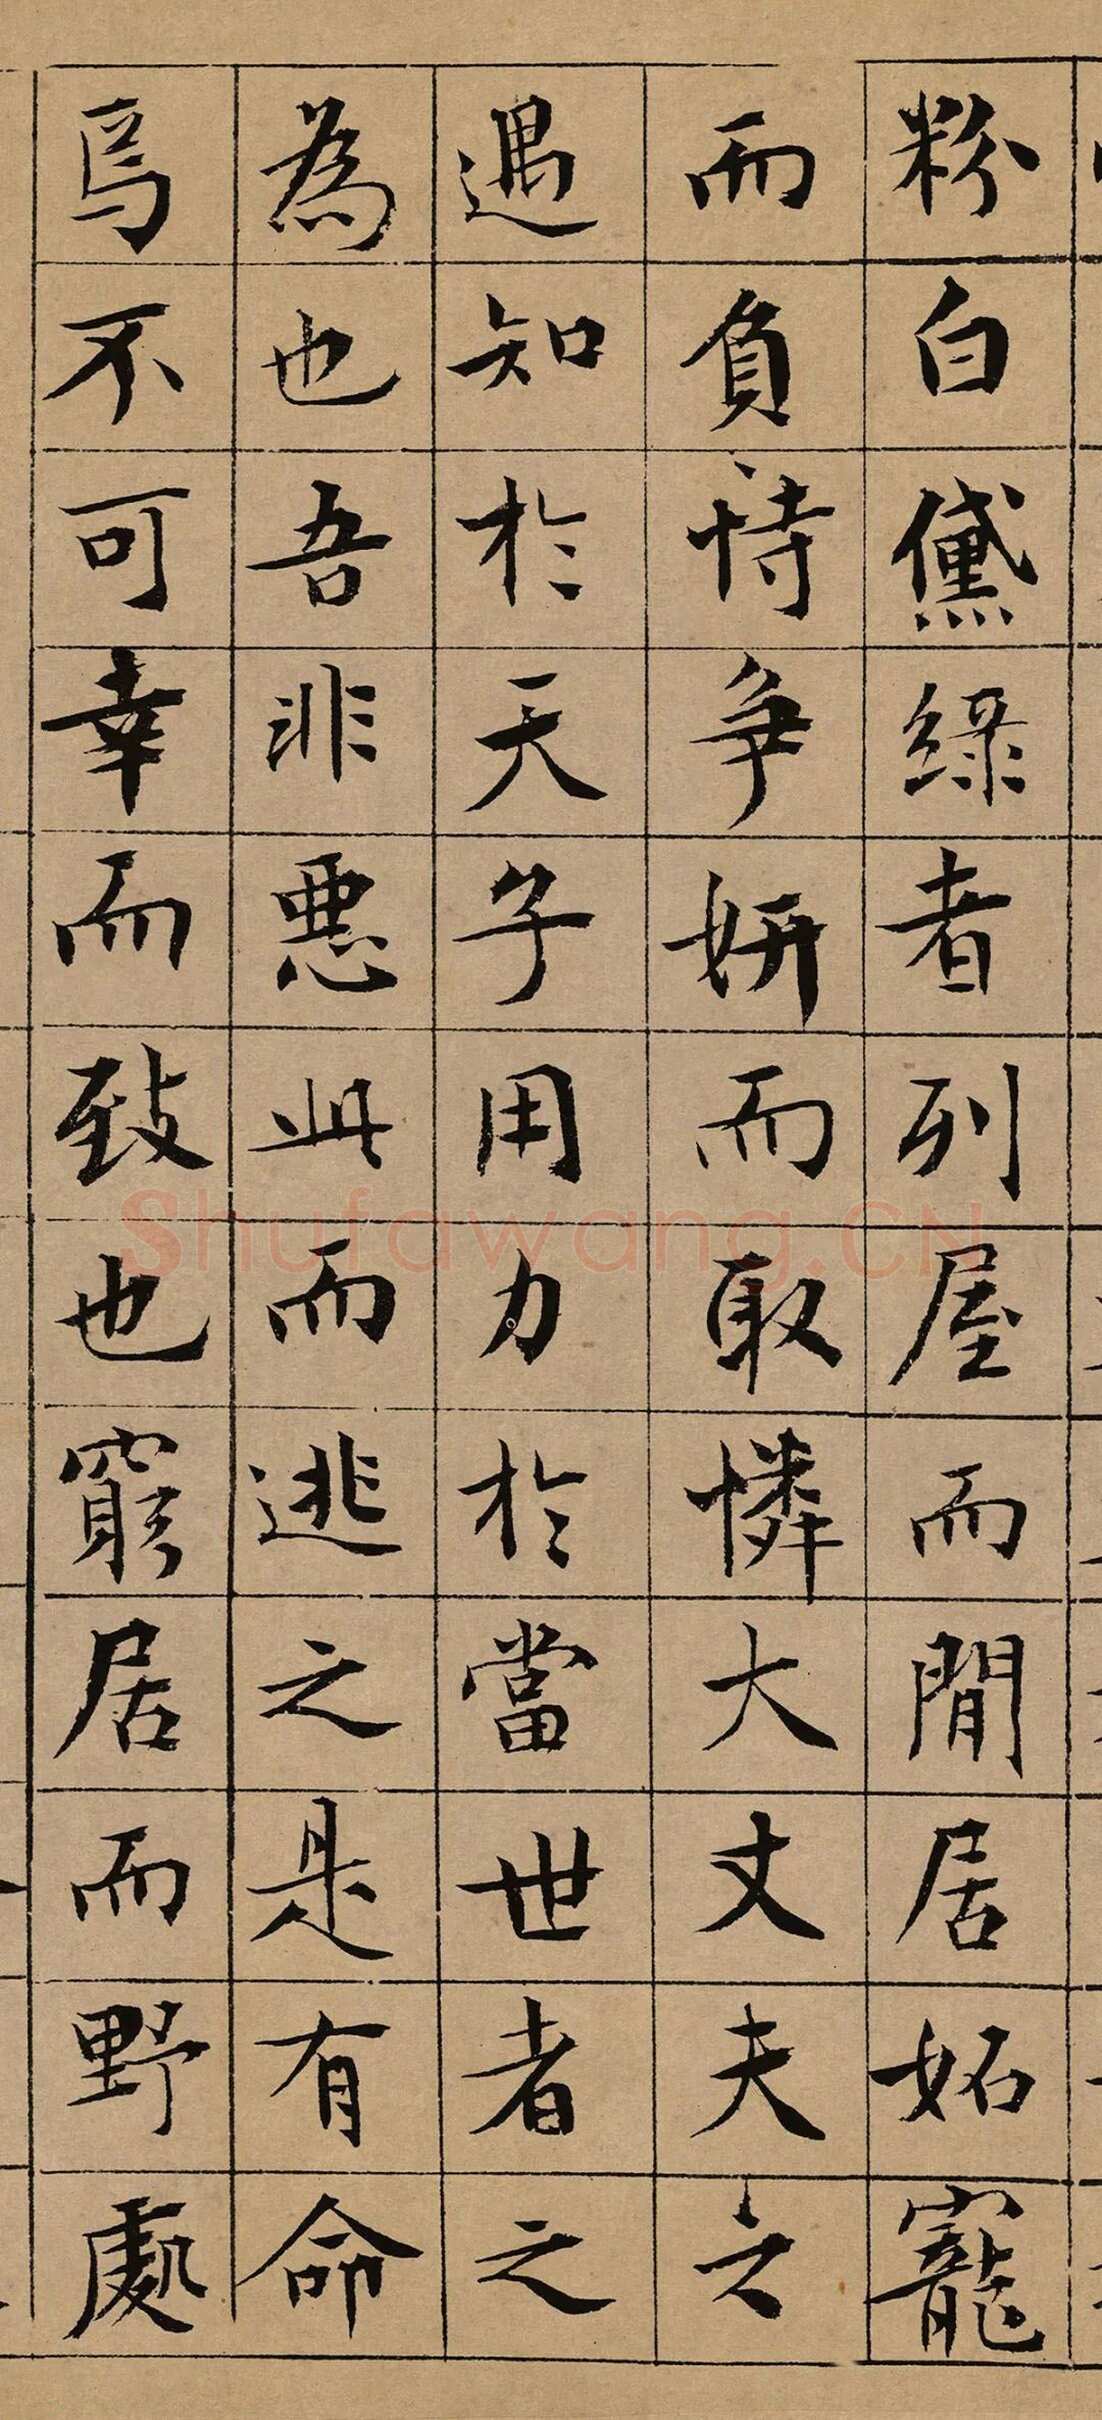 粉白黛綠者列屋而閒居妬寵
而負恃爭妍而取憐大丈夫之
遇知於天子用力於當世者之
為也吾非惡此而逃之是有命
焉不可幸而致也窮居而野處
Shufawang.CN